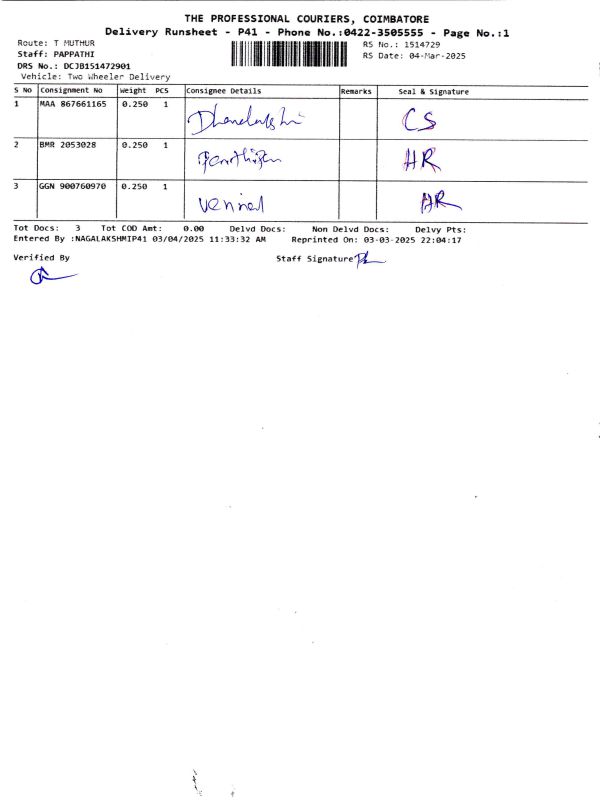 THE PROFESSIONAL COURIERS, COIMBATORE
Delivery Runsheet - P41 - Phone No.:0422-3505555 - Page No.:1
Route: T MUTHUR
RS No.: 1514729
Staff: PAPPATHI
RS Date: 04-Mar-2025
DRS No.: DCJB151472901
Vehicle: Two Wheeler Delivery
S No Consignment No Weight PCS Consignee Details Remarks Seal & Signature
1 MAA 867661165 0.250 1 Dhanalakshmi CS
2 BMR 2053028 0.250 1 HR
3 GGN 900760970 0.250 1 HR
Tot Docs: 3 Tot COD Amt: 0.00 Delvd Docs: Non Delvd Docs: Delvy Pts:
Entered By :NAGALAKSHMIP41 03/04/2025 11:33:32 AM Reprinted On: 03-03-2025 22:04:17
Verified By Staff Signature